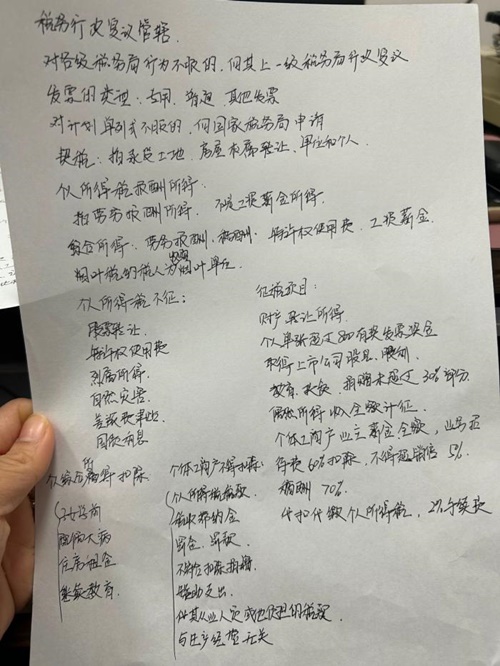 税务行政复议管辖.
对各级税务局行为不服的,向其上一级税务局行政复议
发票的类型:专用 普通 其他发票
对计划单列市不服的,向国家税务局申请
契税:指承受土地、房屋权属转让、单位和个人
个人所得税报酬所得:
指劳务报酬所得. 不是工资薪金所得.
综合所得:劳务报酬、稿酬、特许权使用费、工资薪金.
烟叶税纳税人为收购烟叶单位.
个人所得税不征:
股票转让.
特许权使用费
烈属所得.
自然灾害
国债利息
征税项目:
财产转让所得
个人单张超过800有奖发票奖金
取得上市公司股息、
教育、扶贫、捐赠未超过30%部分
偶然所得收入全额计征.
个体工商户业主薪金全额,业务招
待费60%扣除,不得超销售5‰
稿酬70%
代扣代缴个人所得税,2%手续费
个人综合所得扣除
子女学前
大病
住房租金
继续教育.
个体工商户不得扣除:
个人所得税税款
滞纳金
罚金、罚款
不符扣除捐赠
赞助支出
代其从业人员或他人负担的税款
与生产经营无关